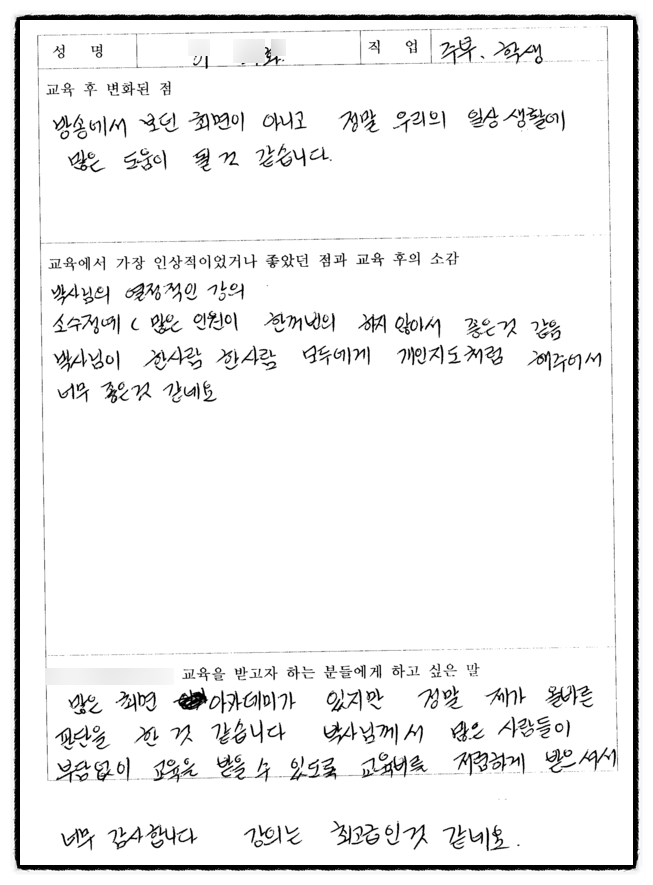 성 명 화. 직 업 주부. 학생
교육 후 변화된 점
방송에서 보던 최면이 아니고 정말 우리의 일상 생활에
많은 도움이 될 것 같습니다.
교육에서 가장 인상적이었거나 좋았던 점과 교육 후의 소감
박사님의 열정적인 강의
소수정예 ( 많은 인원이 한꺼번의 하지 않아서 좋은것 같음
박사님이 한사람 한사람 모두에게 개인지도처럼 해주어서
너무 좋은것 같네요
교육을 받고자 하는 분들에게 하고 싶은 말
많은 최면 아카데미가 있지만 정말 제가 올바른
판단을 한 것 같습니다 박사님께서 많은 사람들이
부담없이 교육을 받을 수 있도록 교육비를 저렴하게 받으셔서
너무 감사합니다 강의는 최고급인것 같네요.